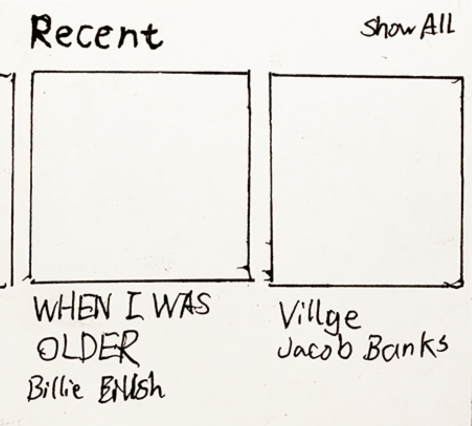 Recent
Show All
WHEN I WAS
OLDER
Billie
Villge
Jacob Banks